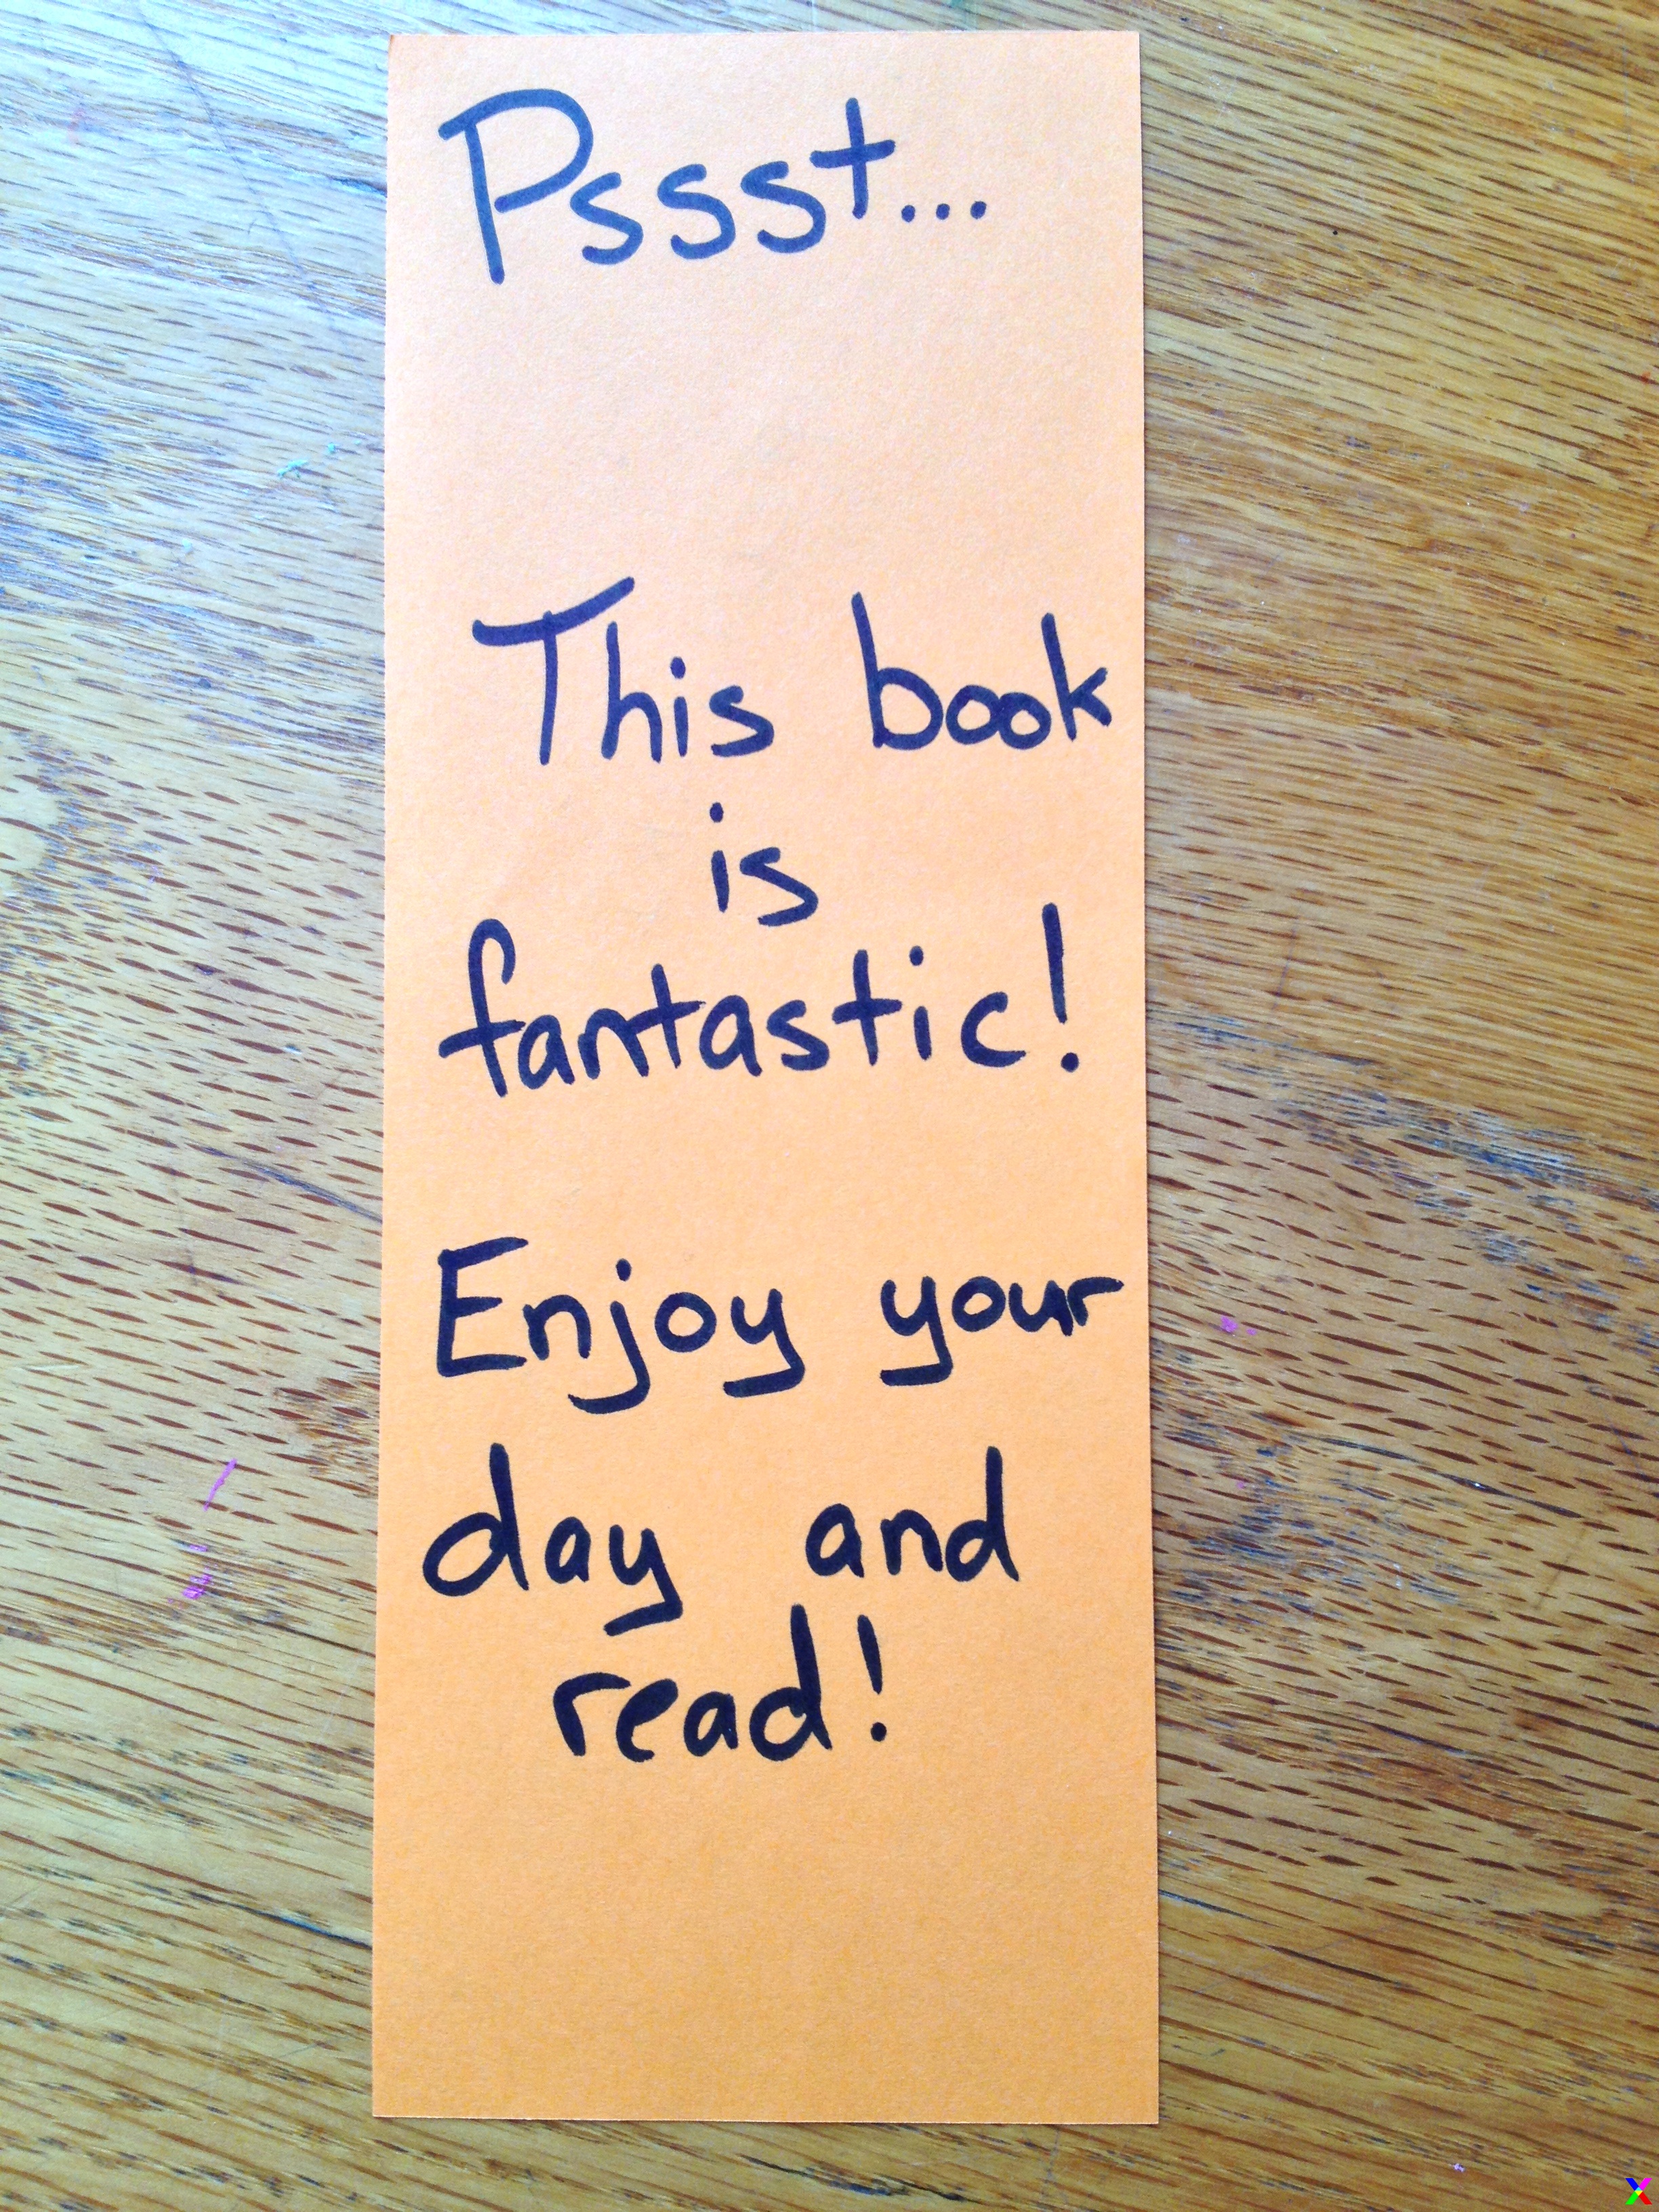 Pssst...
This book
is
fantastic!
Enjoy your
day and
read!